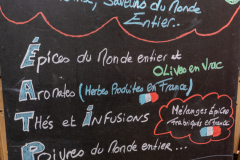 Saveurs du Monde
Entier.
Épices du Monde entier et
Olives en Vrac
Aromates (Herbes Produites en France)
Thés et Infusions
Mélanges Épices
Fabriqués en France
Poivres du Monde entier...